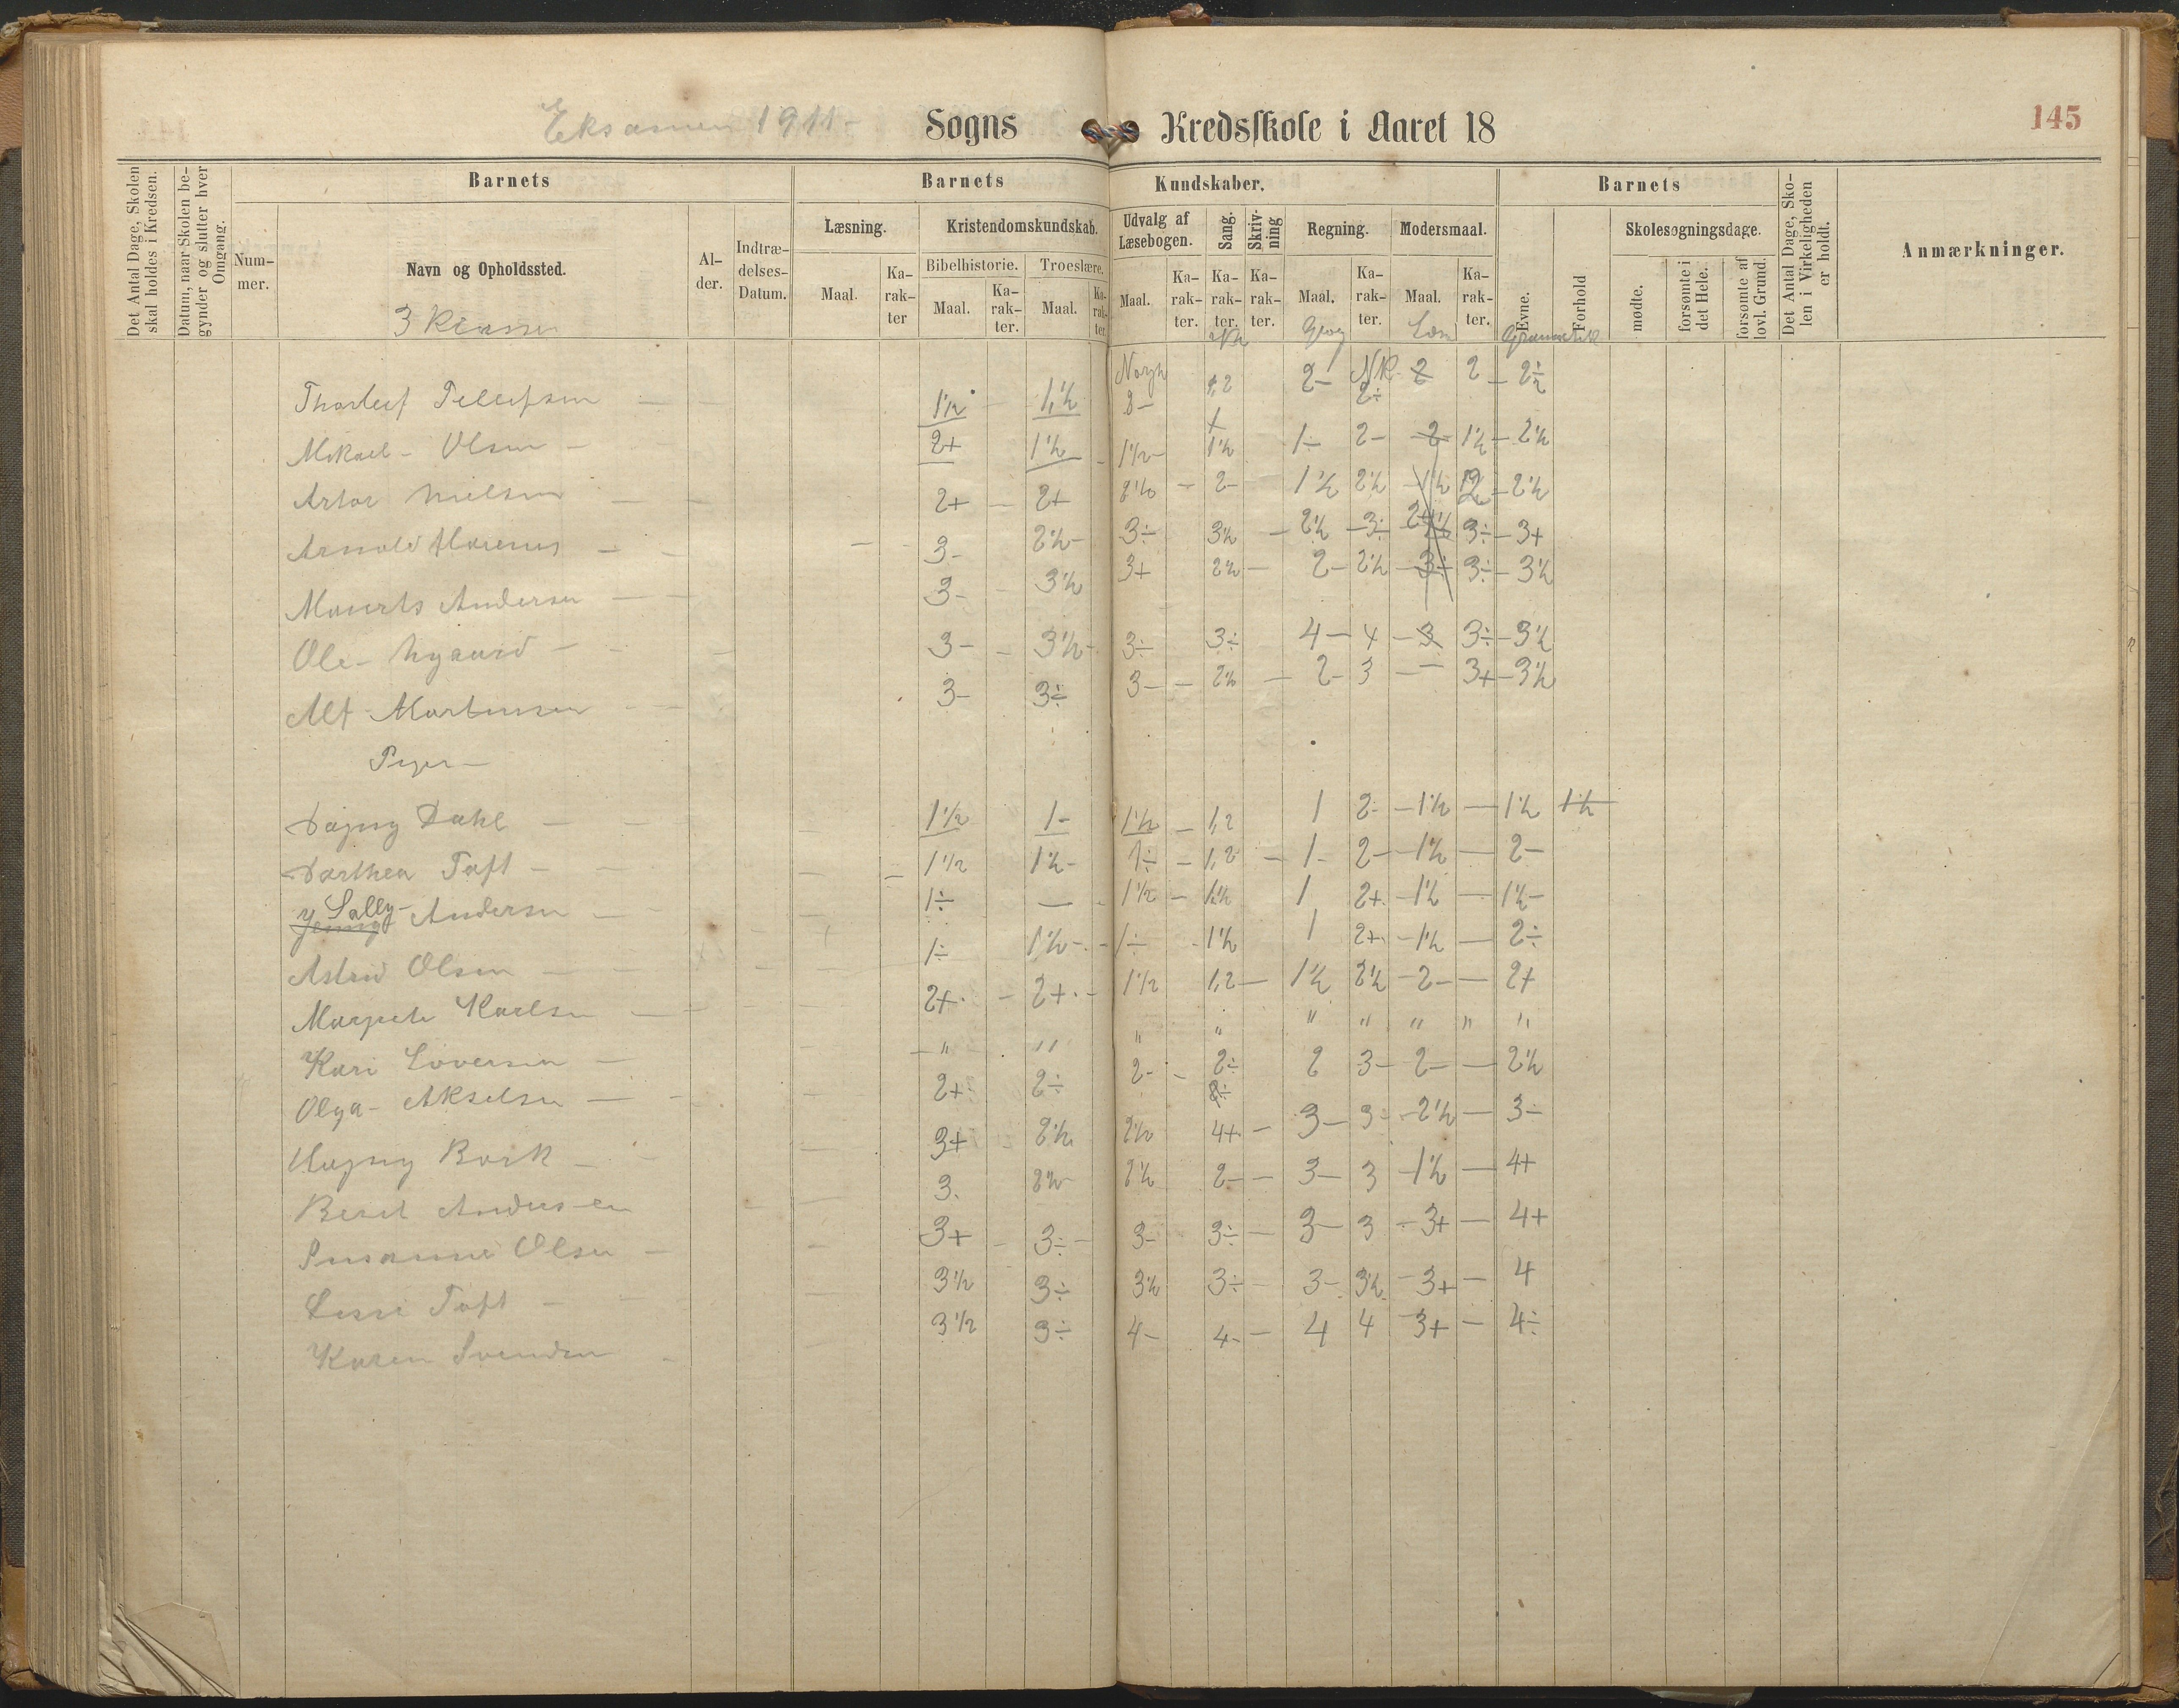 Eksamen 1911 - Sogns Kredsskole i Aaret 18
145
Det Antal Dage, Skolen skal holdes i Kredsen.
Datum, naar Skolen begynder og slutter hver Omgang.
Barnets
Nummer.
Navn og Opholdssted.
3 Klasse
Alder.
Indtrædelses-Datum.
Barnets Kundskaber.
Læsning.
Maal.
Karakter
Kristendomskundskab.
Bibelhistorie.
Maal.
Karakter.
Troeslære.
Maal.
Karakter.
Udvalg af Læsebogen.
Maal.
Karakter.
Sang.
Karakter.
Skrivning
Karakter.
Regning.
Maal.
Karakter.
Modersmaal.
Maal.
Karakter.
Barnets
Evne.
Forhold
Skolesøgningsdage.
mødte.
forsømte i det Hele.
forsømte af lovl. Grund.
Det Antal Dage, Skolen i Virkeligheden er holdt.
Anmærkninger.
Geog Læs Grammatik
Norgh NR
Thorleif Tellefsen — — 1½ — 1,½ 2- 1,2 2- 2÷ 2 2 - 2÷
Mikael - Olsen — 2+ 1½ - 1½- 1½ 1- 2- 2- 1½ - 2½
Artor Nielsen — — 2+ — 2+ 2½ - 2- 1½ 2½ - 1½ 2 - 2½
Arnold — — 3- 2½- 3÷ 3½ - 2½ - 3÷ 3÷ - 3+
Mourits Andersen — — 3- - 3½ 3+ 2½ - 2- 2½ - 3÷ 3÷ - 3½
Ole - Nygaard — 3- - 3½- 3÷ 3÷ 4 - 4 - 3 3÷ - 3½
Alf Martinsen — 3- 3÷ 3- - 2½ - 2- 3 - 3+ - 3½
Piger —
Dagny Dahl — — 1½ 1- 1½ - 1,2 1 2- - 1½ — 1½ 1½
Dorthea Toft — — 1½ 1½- 1÷ - 1,2 - 1- 2- - 1½ — 2-
Jenny Sally - Andersen — 1÷ — 1½ - 1½ 1 2+ - 1½ — 1½-
Astrid Olsen — — 1÷ 1½- 1÷ - 1½ 1 2+ - 1½ — 2÷
Margrete Karlsen — — 2+ - 2+ - 1½ 1,2 - 1½ 2½ - 2- — 2+
Kari — - " " " " " " " " "
Olga - Akselsen — — 2+ 2÷ 2- - 2÷ 2 3- 2- — 2½
2÷
Dagny Bork — 3+ 2½ 2½ 4+ - 3- 3- - 2½ — 3-
Berit Andersen 3. 2½ 2½ 2- - 3- 3 - 1½ — 4+
Susanne Olsen — 3+ - 3÷- 3- 3÷ - 3- 3 - 3+ — 4+
Toft — — 3½ 3÷ 3½ 3÷ - 3- 3½ - 3+ — 4
Karen Svendsen — 3½ 3÷ 4- 4- - 4 4 3+ - 4÷